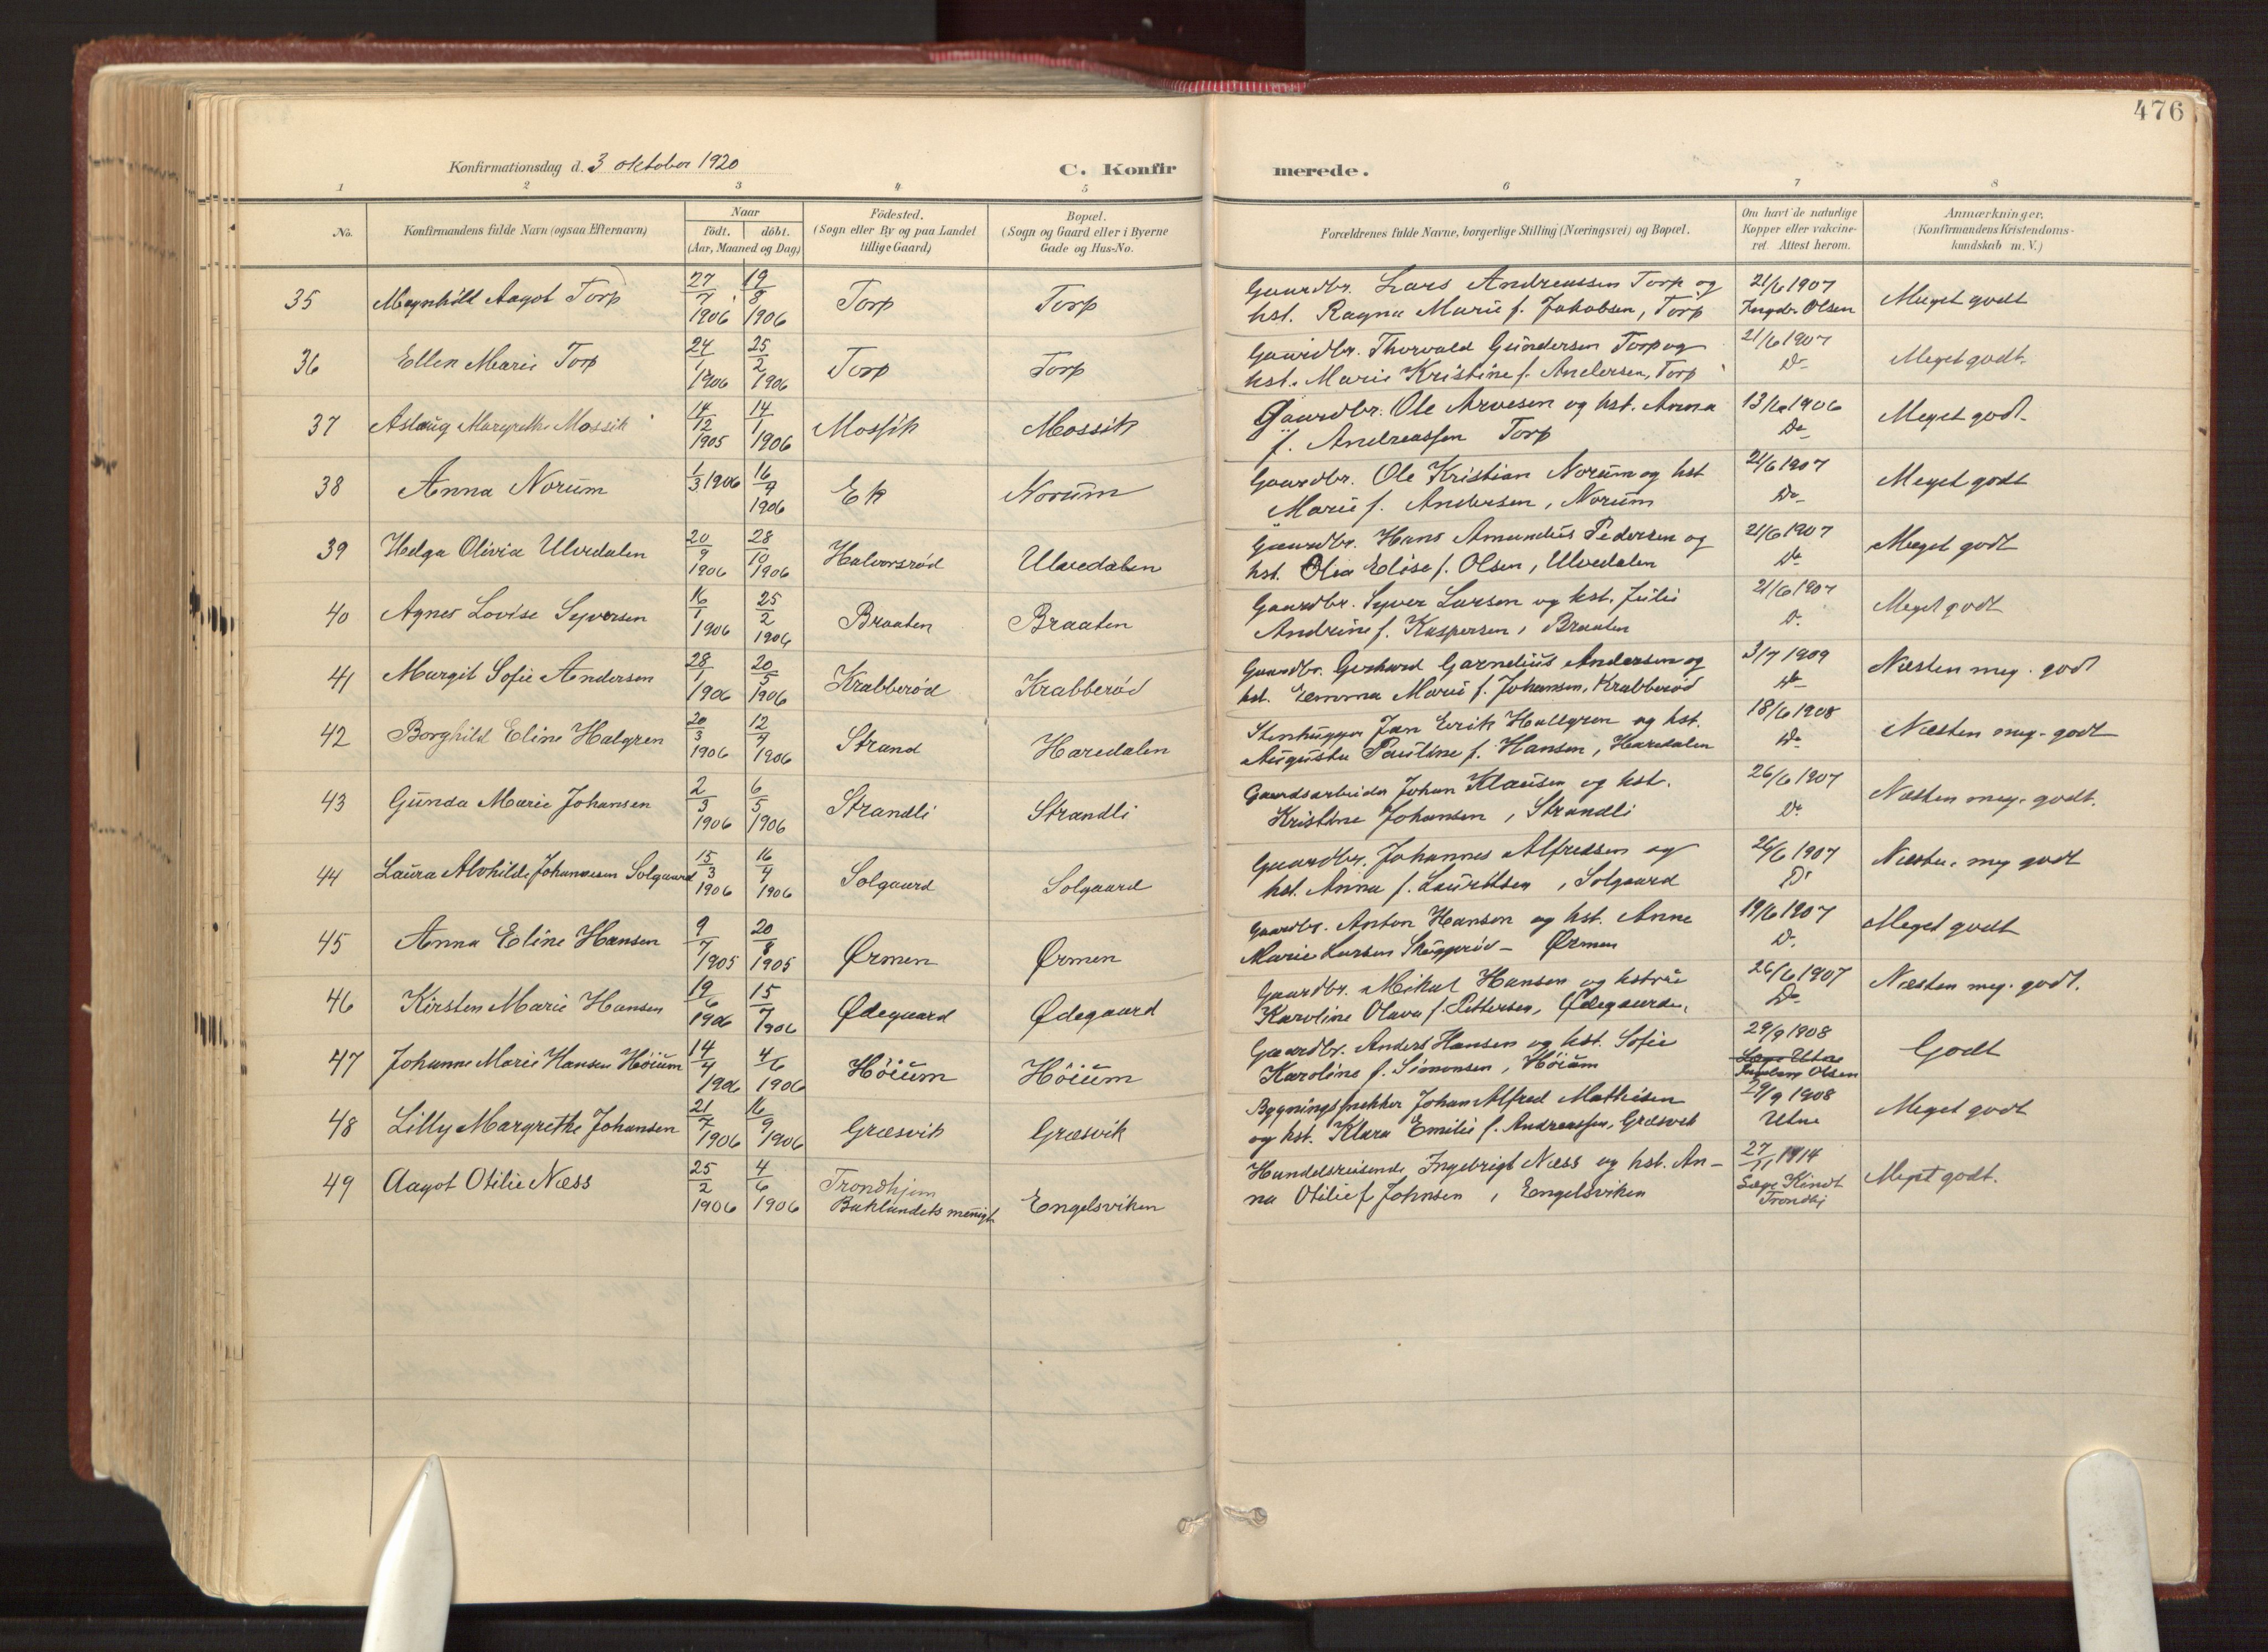 476
Konfirmationsdag d. 3 oktober 1920
C. Konfirmerede.
1 2 3 4 5 6 7 8
No. Konfirmandens fulde Navn (ogsaa Efternavn) Naar født. døbt. (Aar, Maaned og Dag) Fødested. (Sogn eller By og paa Landet tillige Gaard) Bopæl. (Sogn og Gaard eller i Byerne Gade og Hus-No. Forældrenes fulde Navne, borgerlige Stilling (Næringsvei) og Bopæl. Om havt de naturlige Kopper eller vakcineret. Attest herom. Anmærkninger. (Konfirmandens Kristendomskundskab m. V.)
35 Magnhild Aagot Torp 27/7 1906 19/8 1906 Torp Torp Gaardbr. Lars Andreassen Torp og 21/6 1907 Meget godt
hst. Ragna Marie f. Jakobsen, Torp Ingebr. Olsen
36 Ellen Marie Torp 24/1 1906 25/2 1906 Torp Torp Gaardbr. Thorvald Gundersen Torp og 21/6 1907 Meget godt.
hst. Marie Kristine f. Andersen, Torp Do
37 Aslaug Margrethe Mossik 14/12 1905 14/1 1906 Mossik Mossik Gaardbr. Ole Arvesen og hst. Anna 13/6 1906 Meget godt.
f. Andreassen Torp Do
38 Anna Norum 1/3 1906 16/9 1906 Ek Norum Gaardbr. Ole Kristian Norum og hst 21/6 1907 Meget godt
Marie f. Andersen, Norum Do
39 Helga Olivia Ulvedalen 20/9 1906 28/10 1906 Halvorsrød Ulvedalen Gaardbr. Hans Amundius Pedersen og 21/6 1907 Meget godt
hst. Olea Elise f. Olsen, Ulvedalen Do
40 Agnes Lovise Syversen 16/1 1906 25/2 1906 Braaten Braaten Gaardbr. Syver Larsen og hst. Julie 21/6 1907 Meget godt
Andrine f. Kaspersen, Braaten Do
41 Margit Sofie Andersen 28/1 1906 20/5 1906 Krabberød Krabberød Gaardbr. Gerhard Garnelius Andersen og 3/7 1909 Næsten meg. godt
hst. Emma Marie f. Johansen, Krabberød Do
42 Borghild Eline Halgren 20/3 1906 12/7 1906 Strand Haredalen Stenhugger Jan Erik Hallgren og hst. 18/6 1908 Næsten meg. godt
Augusta Pauline f. Hansen, Haredalen Do
43 Gunda Marie Johansen 2/3 1906 6/5 1906 Strandli Strandli Gaardsarbeider Johan Klausen og hst. 26/6 1907 Næsten meg. godt.
Kristine Johansen, Strandli Do
44 Laura Alvhilde Johannesen Solgaard 15/3 1906 16/4 1906 Solgaard Solgaard Gaardbr. Johannes Alfredsen og 26/6 1907 Næsten meg godt
hst. Anna f. Lauritsen, Solgaard Do
45 Anna Eline Hansen 9/7 1905 20/8 1905 Ørmen Ørmen Gaardbr. Anton Hansen og hst. Anne 19/6 1907 Meget godt
Marie Larsen Skuggerød - Ørmen Do
46 Kirsten Marie Hansen 19/6 1906 15/7 1906 Ødegaard Ødegaard Gaardbr. Mikal Hansen og hstru 26/6 1907 Næsten meg. godt.
Karoline Olava f. Pettersen, Ødegaarden Do
47 Johanne Marie Hansen Høium 14/4 1906 4/6 1906 Høium Høium Gaardbr. Anders Hansen og hst. Sofie 29/9 1908 Godt
Karoline f. Simonsen, Høium Læge Utne Ingebr. Olsen
48 Lilly Margrethe Johansen 21/7 1906 16/9 1906 Græsvik Græsvik Bygningssnekker Johan Alfred Mathisen 29/9 1908 Meget godt
og hst. Klara Emilie f. Andreassen, Græsvik Utne
49 Aagot Otilie Næss 25/2 1906 4/6 1906 Trondhjem Baklandets menigh. Engelsviken Handelsreisende Ingebrigt Næss og hst. An- 27/11 1914 Meget godt.
na Otilie f Johnsen, Engelsviken Læge Kindt Trondhj